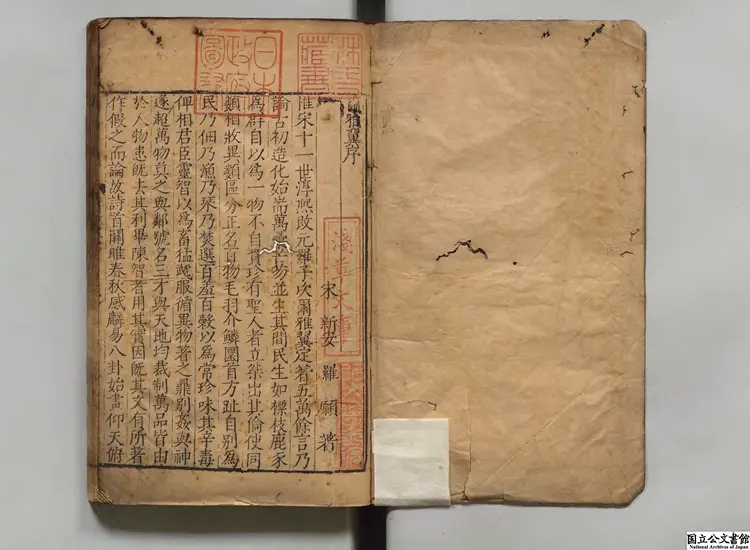 林氏藏書
日本政府圖書
爾雅翼序
淺草文庫
宋 新安 羅願 著
惟宋十一世淳熙改元羅子次爾雅翼定著五萬餘言乃
論古初造化始耑萬並生其間民生如標枝鹿豕
為群自以為一物不自貴珍有聖人者立桀出其倫使同
類相收異類區分正名百物毛羽介鱗圜首方趾自別為
民乃佃乃漁乃采乃焚選百羞百穀以為常珍味其辛毒
俾相君臣靈智以為畜猛服循異物著之鼎別姦與神
遂超萬物莫之與鄰號名三才與天地均裁制萬品皆由
於人物患旣去其利畢陳智者用其實因旣其文有所著
作假之而論故詩首關雎春秋感麟易八卦始畫仰天俯
国立公文書館
National Archives of Japan